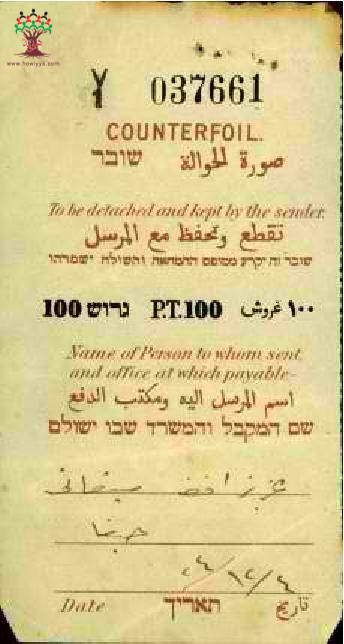 www.howiyya.com
037661
COUNTERFOIL.
صورة للحوالة שובר
To be detached and kept by the sender.
تقطع وتحفظ مع المرسل
שובר זה יקרע מטופס ההמחאה והשולח ישמרהו
100 גרוש P.T.100 ١٠٠ غروش
Name of Person to whom sent
and office at which payable-
اسم المرسل اليه ومكتب الدفع
שם המקבל והמשרד שבו ישולם
عزيز
حيفا
Date תאריך تاريخ